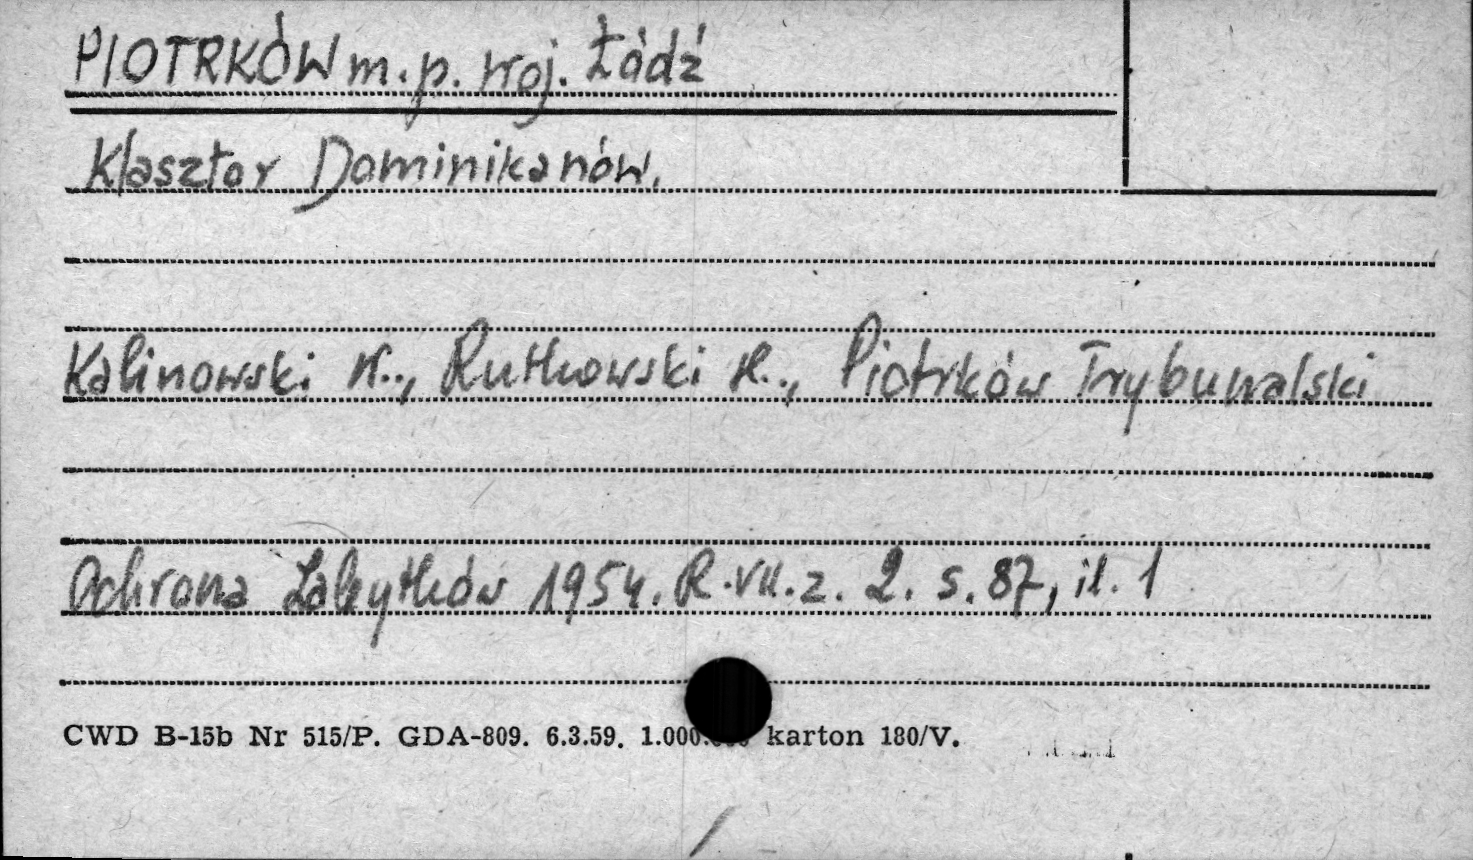 PIOTRKÓW m. p. woj. Łódź
Klasztor Dominikanów.
Kalinowski K., Rutkowski H., Piotrków Trybunalski
Ochrona Zabytków 1954. R. VII. z. 2. s. 87, il. 1
CWD B-15b Nr 515/P. GDA-809. 6.3.59. karton 180/V.